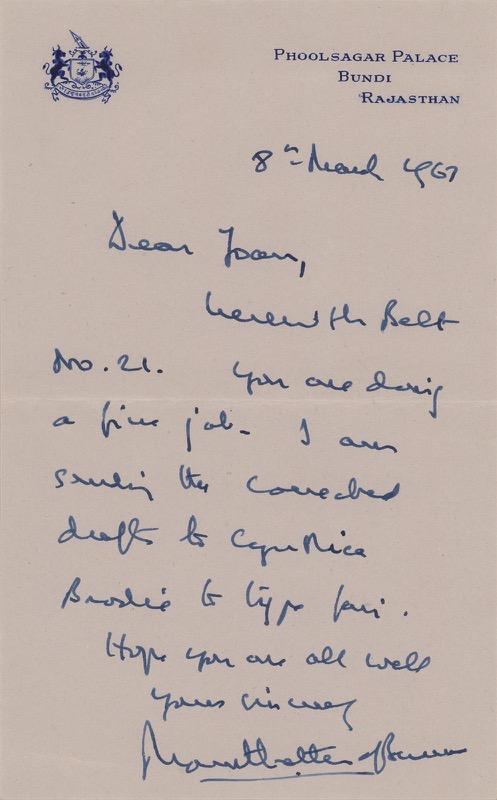 PHOOLSAGAR PALACE
BUNDI
RAJASTHAN
8th March 1967
Dear Joan,
herewith Belt
No. 21. You are doing
a fine job - I am
sending the corrected
drafts to Capt
Brodie to type fair.
Hope you are all well
Yours sincerely
Mountbatten of Burma